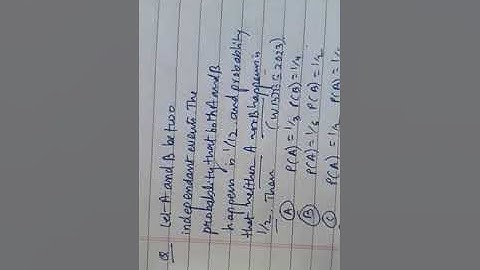 Q Let A and B be two
independent events. The
probability that both A and B
happen is 1/12 and probability
that neither A nor B happens is
1/2. Then (WBJEE 2023)
(A) P(A) = 1/3 P(B) = 1/4
(B) P(A) = 1/6 P(B) = 1/2
(C) P(A) = 1/2 P(A) =